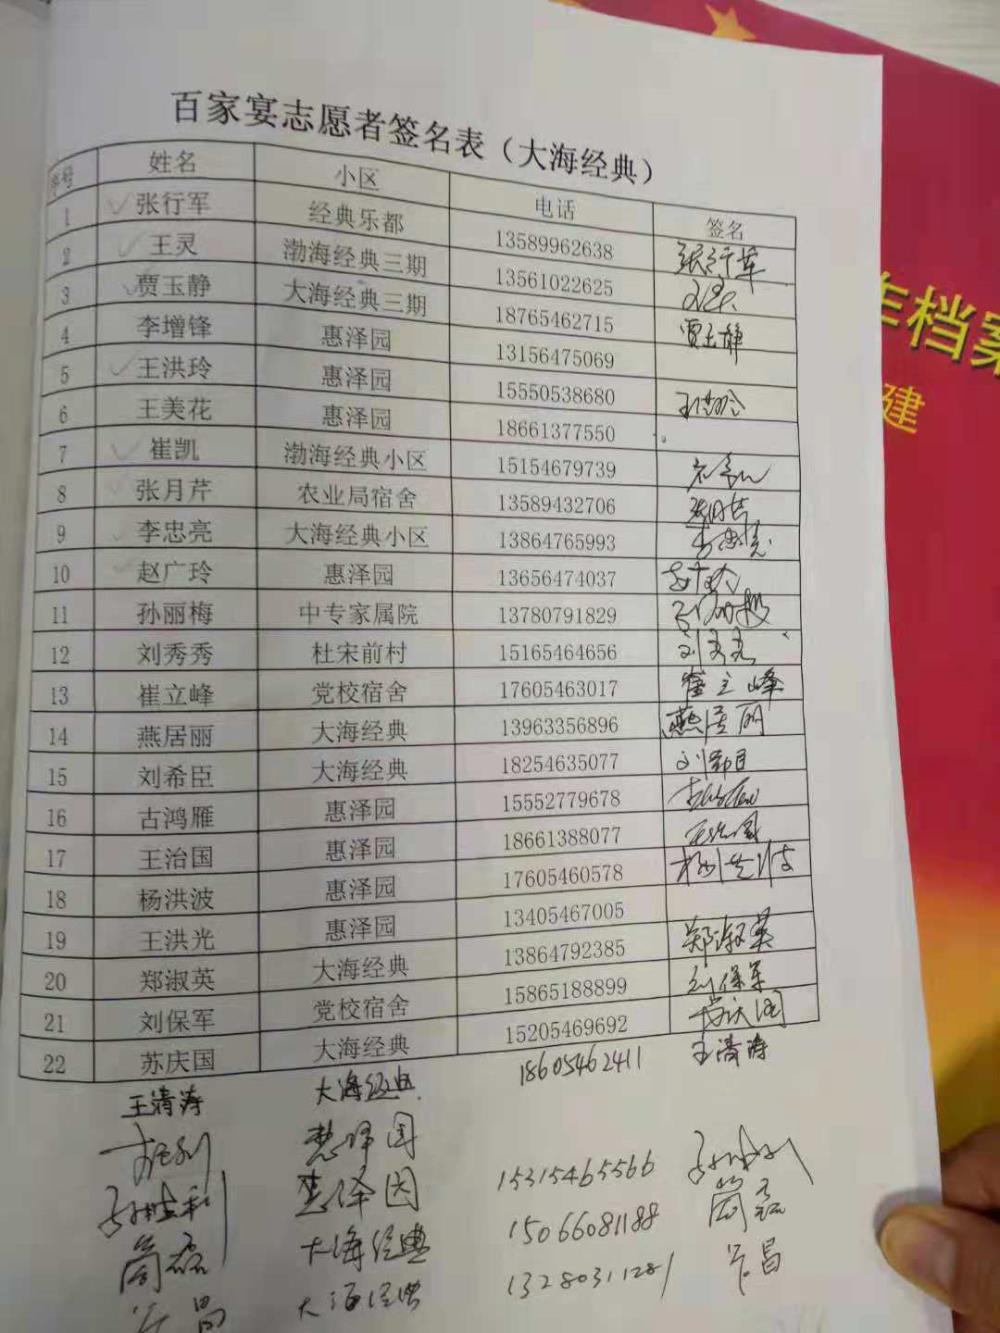 百家宴志愿者签名表（大海经典）
序号 姓名 小区 电话 签名
1 张行军 经典乐都 13589962638 张行军
2 王灵 渤海经典三期 13561022625
3 贾玉静 大海经典三期 18765462715 贾玉静
4 李增锋 惠泽园 13156475069
5 王洪玲 惠泽园 15550538680 王洪玲
6 王美花 惠泽园 18661377550
7 崔凯 渤海经典小区 15154679739
8 张月芹 农业局宿舍 13589432706
9 李忠亮 大海经典小区 13864765993 李忠亮
10 赵广玲 惠泽园 13656474037
11 孙丽梅 中专家属院 13780791829
12 刘秀秀 杜宋前村 15165464656 刘秀秀
13 崔立峰 党校宿舍 17605463017 崔立峰
14 燕居丽 大海经典 13963356896 燕居丽
15 刘希臣 大海经典 18254635077
16 古鸿雁 惠泽园 15552779678
17 王治国 惠泽园 18661388077 王治国
18 杨洪波 惠泽园 17605460578 杨洪波
19 王洪光 惠泽园 13405467005
20 郑淑英 大海经典 13864792385 郑淑英
21 刘保军 党校宿舍 15865188899 刘保军
22 苏庆国 大海经典 15205469692 苏庆国
王清涛 大海经典 18605462411 王清涛
惠泽园
孙胜利 惠泽园 15315465566 孙胜利
大海经典 15066081188
大海经典 13280311281
作档案
建